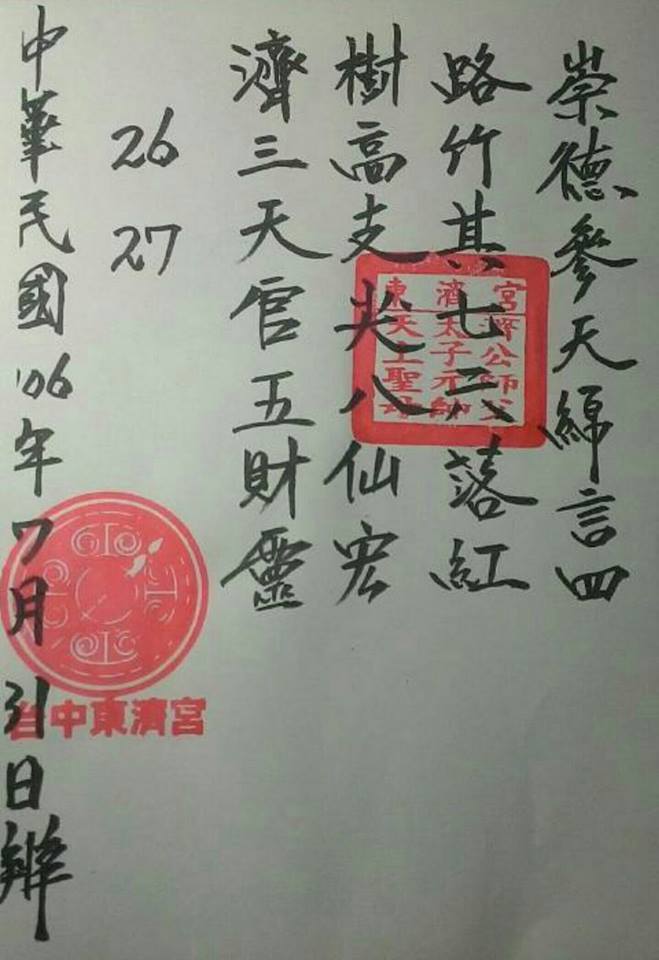 崇德參天綿言四
路竹其七六落紅
樹高支尖八仙宏
濟三天官五財靈
26
27
中華民國106年7月31日辦
東濟宮
濟公師父
太子元帥
天上聖母
台中東濟宮